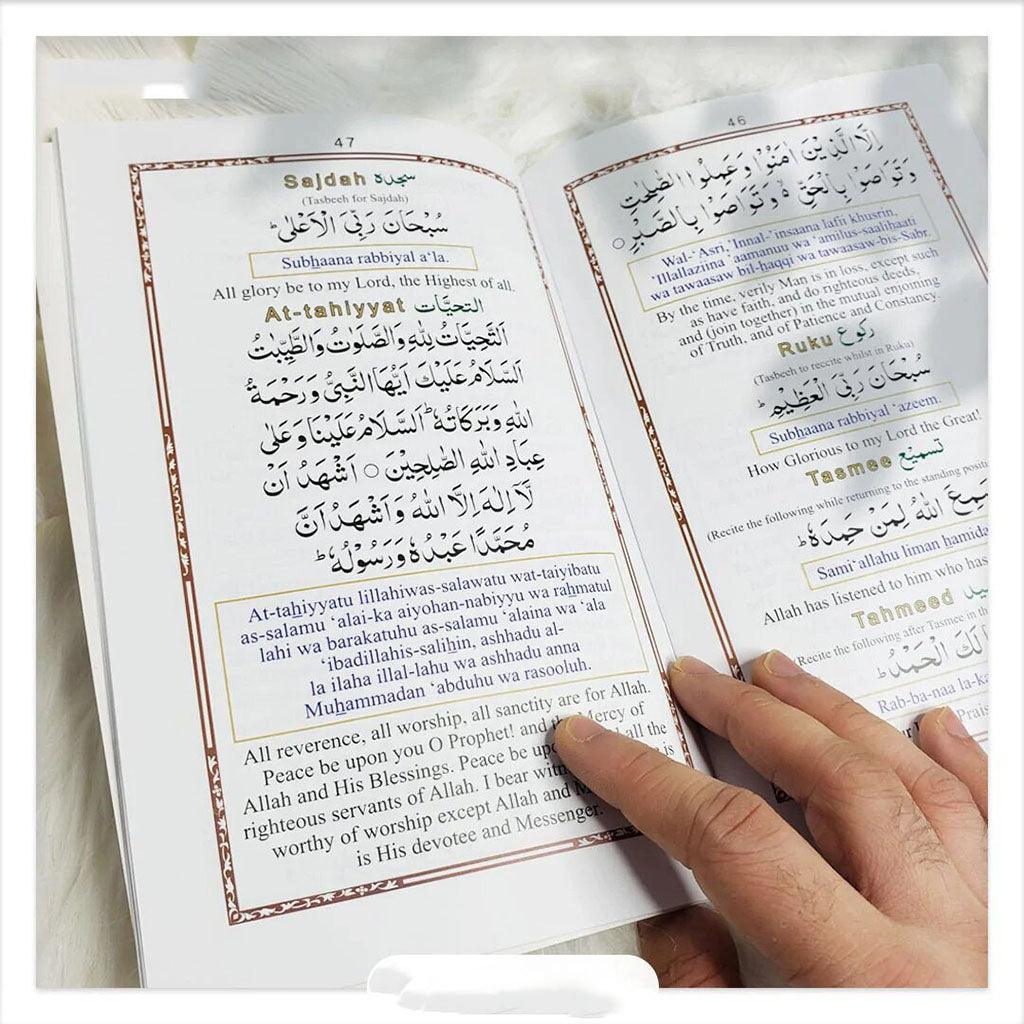 46
اِلَّا الَّذِيْنَ اٰمَنُوْا وَعَمِلُوا الصّٰلِحٰتِ
وَتَوَاصَوْا بِالْحَقِّ ۙ وَتَوَاصَوْا بِالصَّبْرِ ○
Wal-‘Asri, ‘Innal-’insaana lafii khusrin,
‘Illallaziina ‘aamanuu wa ‘amilus-saalihaati
wa tawaasaw bil-haqqi wa tawaasaw-bis-Sabr.
By the time, verily Man is in loss, except such
as have faith, and do righteous deeds,
and (join together) in the mutual enjoining
of Truth, and of Patience and Constancy.
Ruku رکوع
(Tasbeeh to reccite whilst in Ruku)
سُبْحَانَ رَبِّىَ الْعَظِيْمِ ؕ
Subhaana rabbiyal ‘azeem.
How Glorious to my Lord the Great!
Tasmee تسمیع
(Recite the following while returning to the standing
سَمِعَ اللّٰهُ لِمَنْ حَمِدَهٗ ؕ
Sami‘allahu liman
Allah has listened to him who has
Tahmeed
Recite the following after Tasmee in the
لَكَ الْحَمْدُ ؕ
Rab-ba-naa
47
Sajdah سجدہ
(Tasbeeh for Sajdah)
سُبْحَانَ رَبِّىَ الْاَعْلٰى ؕ
Subhaana rabbiyal a‘la.
All glory be to my Lord, the Highest of all.
At-tahiyyat التحیَّات
اَلتَّحِيَّاتُ لِلّٰهِ وَالصَّلَوٰتُ وَالطَّيِّبٰتُ
اَلسَّلَامُ عَلَيْكَ اَيُّهَا النَّبِىُّ وَرَحْمَةُ
اللّٰهِ وَبَرَكَاتُهٗ ؕ اَلسَّلَامُ عَلَيْنَا وَعَلٰى
عِبَادِ اللّٰهِ الصّٰلِحِيْنَ ○ اَشْهَدُ اَنْ
لَّآ اِلٰهَ اِلَّا اللّٰهُ وَاَشْهَدُ اَنَّ
مُحَمَّدًا عَبْدُهٗ وَرَسُوْلُهٗ ؕ
At-tahiyyatu lillahiwas-salawatu wat-taiyibatu
as-salamu ‘alai-ka aiyohan-nabiyyu wa rahmatul
lahi wa barakatuhu as-salamu ‘alaina wa ‘ala
‘ibadillahis-salihin, ashhadu al-
la ilaha illal-lahu wa ashhadu anna
Muhammadan ‘abduhu wa rasooluh.
All reverence, all worship, all sanctity are for Allah.
Peace be upon you O Prophet! and the Mercy of
Allah and His Blessings. Peace be upon all the
righteous servants of Allah. I bear is
worthy of worship except Allah and
is His devotee and Messenger.